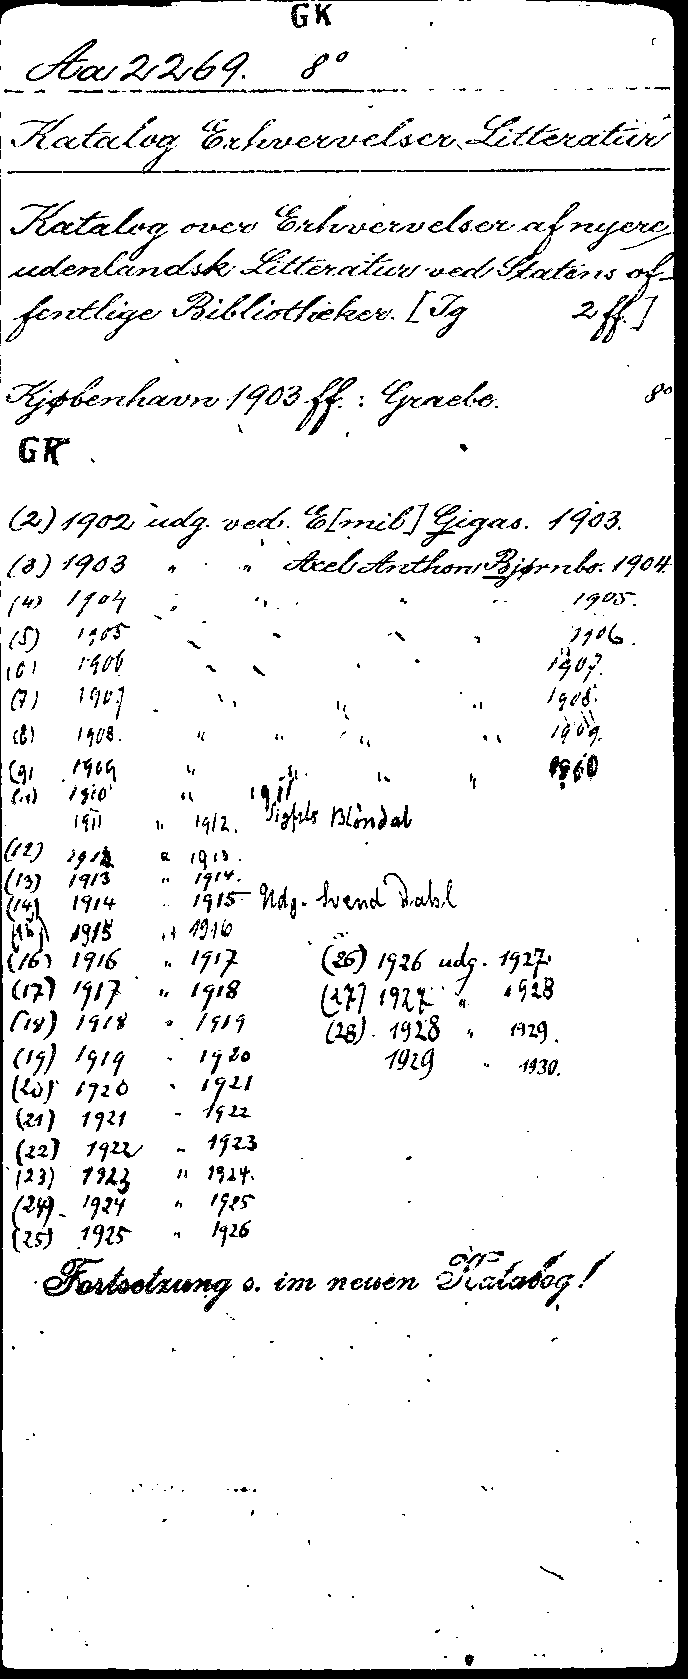 GK
Aa 2269. 8°
Katalog Erhvervelser Litteratur
Katalog over Erhvervelser af nyere
udenlandsk Litteratur ved Statens of-
fentlige Bibliotheker. [Jg 2 ff.]
Kjøbenhavn 1903 ff.: Graebe. 8°
GK
(2) 1902 udg. ved. E[mil] Gigas. 1903.
(3) 1903 " " Axel Anthon Bjørnbo. 1904.
(4) 1904 " " " " 1905.
(5) 1905 " " " " 1906.
(6) 1906 " " " " 1907.
(7) 1907 " " " " 1908.
(8) 1908. " " " " 1909.
(9) 1909 " " " "
1910 " 1911
1911 " 1912. Sigfús Blöndal
(12) 1912 " 1913.
(13) 1913 " 1914.
(14) 1914 " 1915 Udg. Svend Dahl
(15) 1915 " 1916
(16) 1916 " 1917 (26) 1926 udg. 1927.
(17) 1917 " 1918 (27) 1927 " 1928
(18) 1918 " 1919 (28). 1928 " 1929.
(19) 1919 " 1920 1929 " 1930.
(20) 1920 " 1921
(21) 1921 " 1922
(22) 1922 " 1923
(23) 1923 " 1924.
(24). 1924 " 1925
(25) 1925 " 1926
Fortsetzung s. im neuen Katalog!